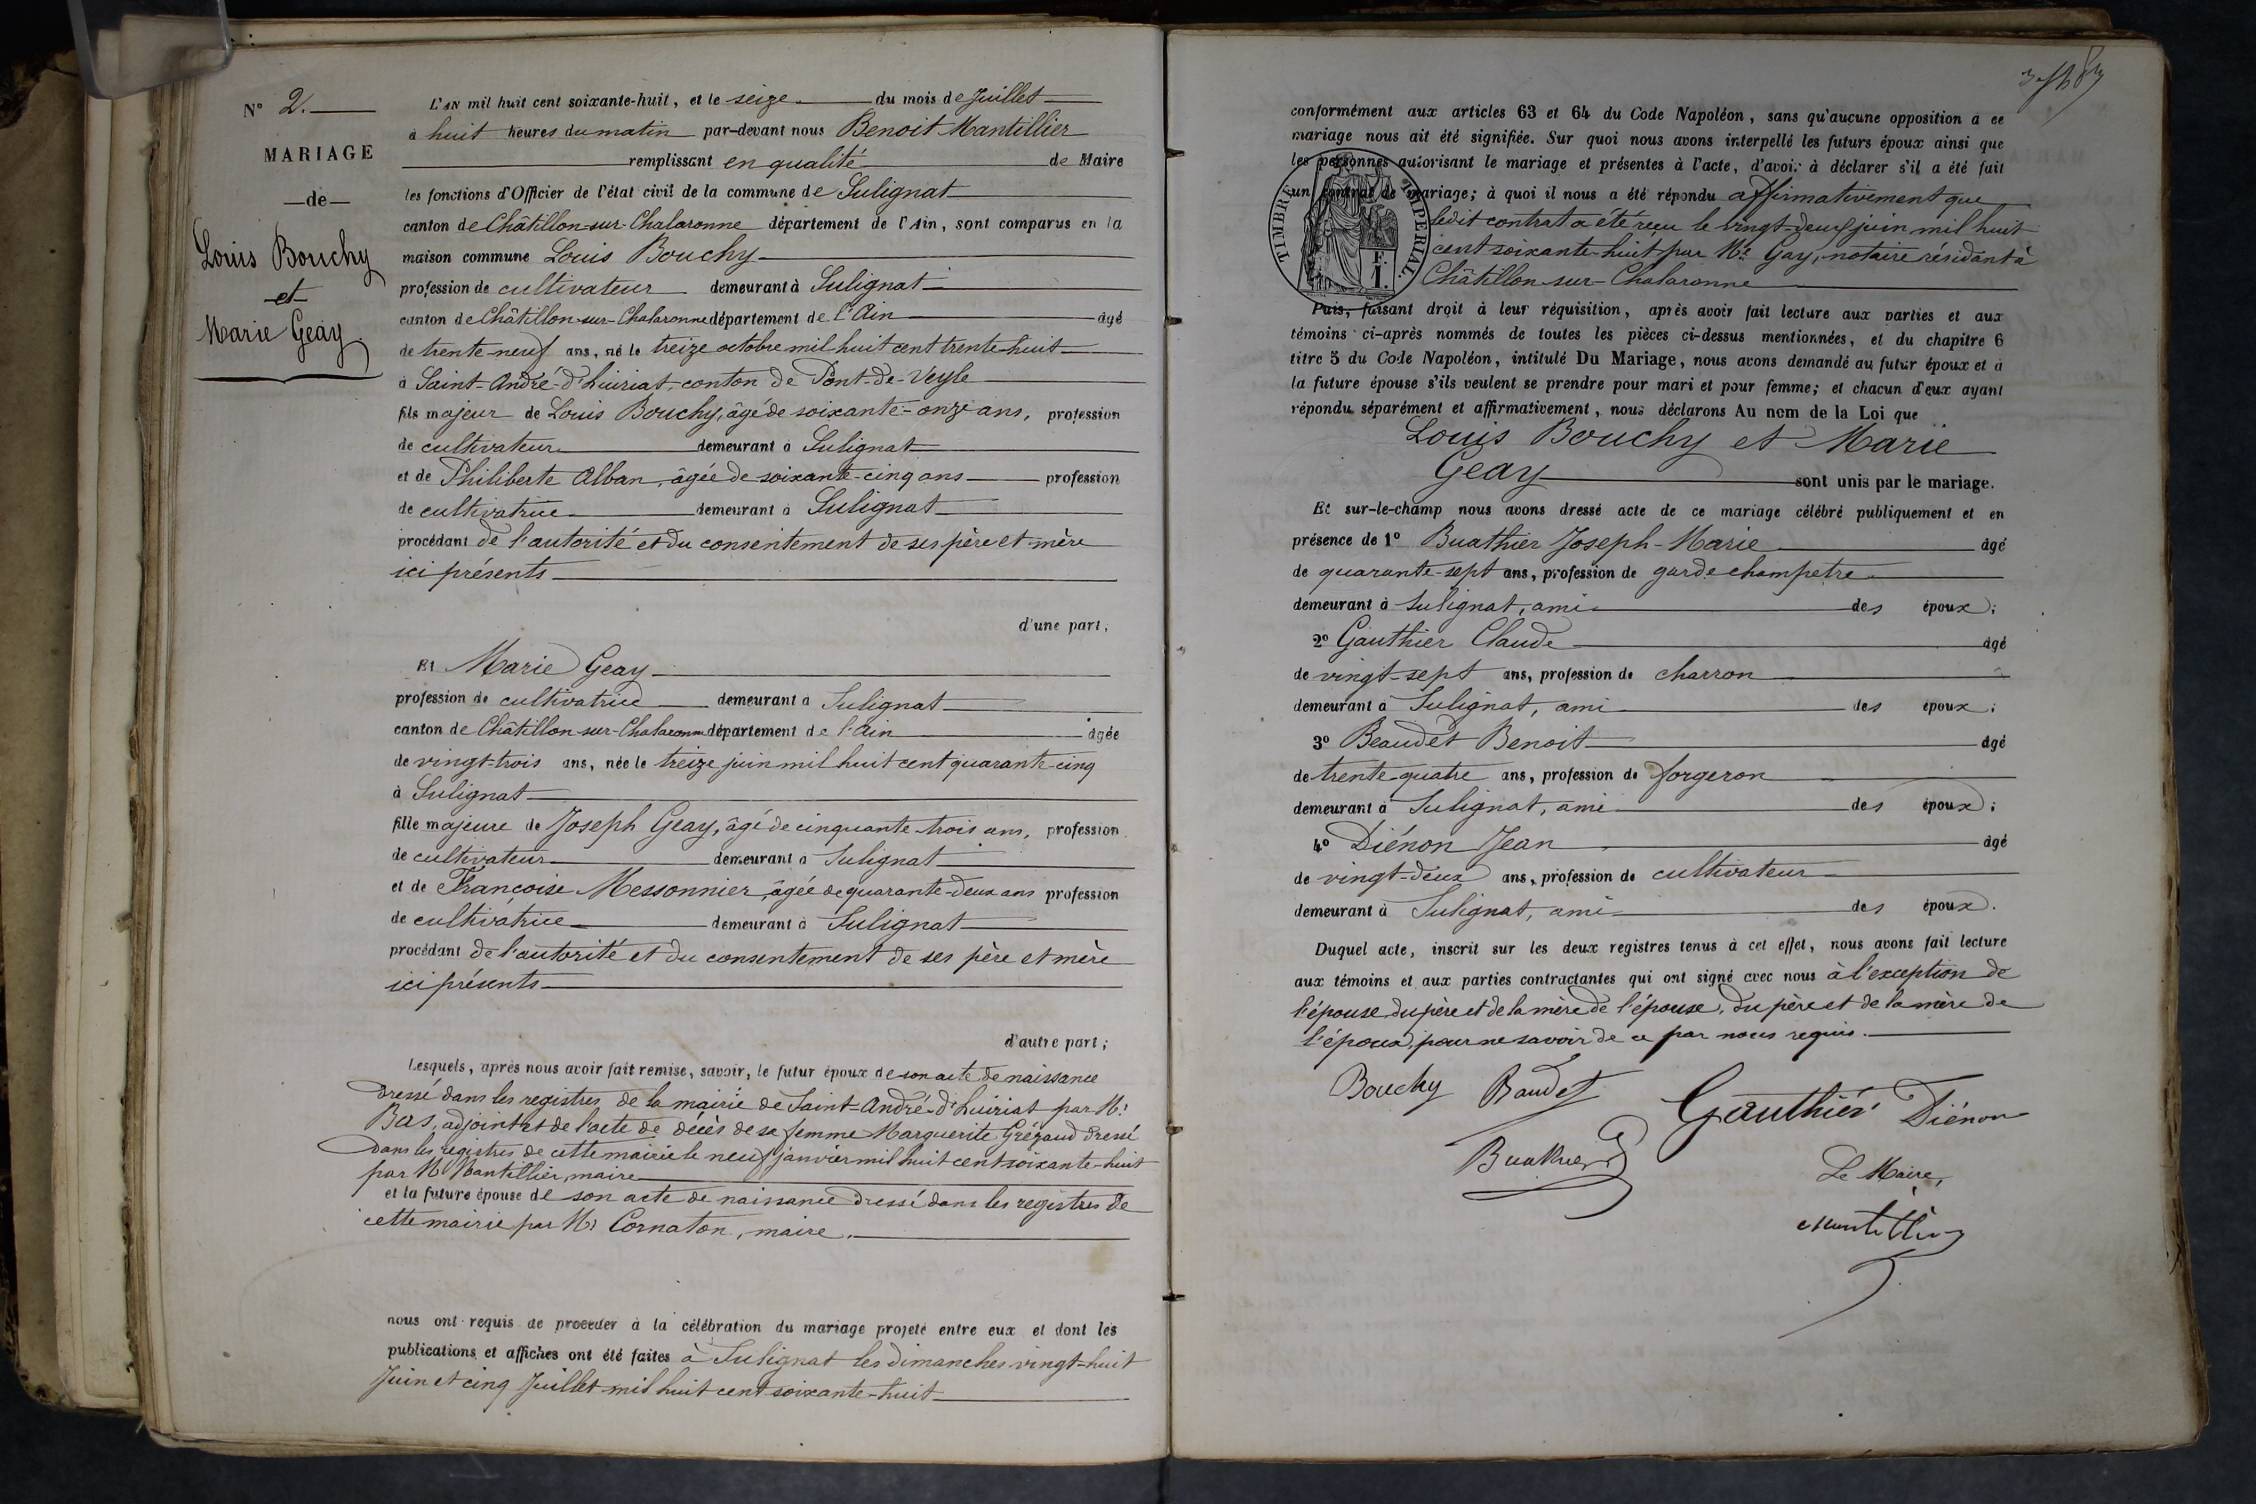 N° 2.
MARIAGE
—de—
Louis Bouchy
et
Marie Geay
L'AN mil huit cent soixante-huit, et le seize du mois de Juillet
à huit heures du matin par-devant nous Benoit Mantillier
remplissant en qualité de Maire
les fonctions d'Officier de l'état civil de la commune de Sulignat
canton de Châtillon-sur-Chalaronne département de l'Ain, sont comparus en la
maison commune Louis Bouchy
profession de cultivateur demeurant à Sulignat
canton de Châtillon-sur-Chalaronne département de l'Ain âgé
de trente-neuf ans, né le treize octobre mil huit cent trente-huit
à Saint-André-d'huiriat, conton de Pont-de-Veyle
fils majeur de Louis Bouchy, âgé de soixante-onze ans, profession
de cultivateur demeurant à Sulignat
et de Philiberte Alban, âgée de soixante-cinq ans profession
de cultivatrice demeurant à Sulignat
procédant de l'autorité et du consentement de ses père et mère
ici présents
d'une part;
Et Marie Geay
profession de cultivatrice demeurant à Sulignat
canton de Châtillon-sur-Chalaronne département de l'Ain âgée
de vingt-trois ans, née le treize juin mil huit cent quarante-cinq
à Sulignat
fille majeure de Joseph Geay, âgé de cinquante-trois ans, profession
de cultivateur demeurant à Sulignat
et de Françoise Messonnier, âgée de quarante-deux ans profession
de cultivatrice demeurant à Sulignat
procédant de l'autorité et du consentement de ses père et mère
ici présents
d'autre part;
Lesquels, après nous avoir fait remise, savoir, le futur époux de son acte de naissance
dressé dans les registres de la mairie de Saint-André-d'huiriat par Mr
Bas, adjoint et de l'acte de décès de sa femme Marguerite Grézaud dressé
dans les registres de cette mairie le neuf janvier mil huit cent soixante-huit
par Mr Mantillier, maire
et la future épouse de son acte de naissance dressé dans les registres de
cette mairie par Mr Cornaton, maire.
nous ont requis de procéder à la célébration du mariage projeté entre eux et dont les
publications et affiches ont été faites à Sulignat les dimanches vingt-huit
Juin et cinq Juillet mil huit cent soixante-huit
conformément aux articles 63 et 64 du Code Napoléon, sans qu'aucune opposition à ce
mariage nous ait été signifiée. Sur quoi nous avons interpellé les futurs époux ainsi que
les personnes autorisant le mariage et présentes à l'acte, d'avoir à déclarer s'il a été fait
un contrat de mariage; à quoi il nous a été répondu affirmativement que
ledit contrat a été reçu le vingt-deux juin mil huit
cent soixante-huit par Me Gay, notaire résidant à
Châtillon-sur-Chalaronne
TIMBRE IMPERIAL.
F.
1.
Puis, faisant droit à leur réquisition, après avoir fait lecture aux parties et aux
témoins ci-après nommés de toutes les pièces ci-dessus mentionnées, et du chapitre 6
titre 5 du Code Napoléon, intitulé Du Mariage, nous avons demandé au futur époux et à
la future épouse s'ils veulent se prendre pour mari et pour femme; et chacun d'eux ayant
répondu séparément et affirmativement, nous déclarons Au nom de la Loi que
Louis Bouchy et Marie
Geay sont unis par le mariage.
Et sur-le-champ nous avons dressé acte de ce mariage célébré publiquement et en
présence de 1° Buathier Joseph-Marie âgé
de quarante-sept ans, profession de garde champetre
demeurant à Sulignat, ami des époux;
2° Gauthier Claude âgé
de vingt-sept ans, profession de charron
demeurant à Sulignat, ami des époux;
3° Beaudet Benoit âgé
de trente-quatre ans, profession de forgeron
demeurant à Sulignat, ami des époux;
4° Diénon Jean âgé
de vingt-deux ans, profession de cultivateur
demeurant à Sulignat, ami des époux.
Duquel acte, inscrit sur les deux registres tenus à cet effet, nous avons fait lecture
aux témoins et aux parties contractantes qui ont signé avec nous à l'exception de
l'épouse, du père et de la mère de l'épouse, du père et de la mère de
l'époux, pour ne savoir de ce par nous requis.
Bouchy Baudet Gauthier Diénon
Buathier
Le Maire,
Mantillier